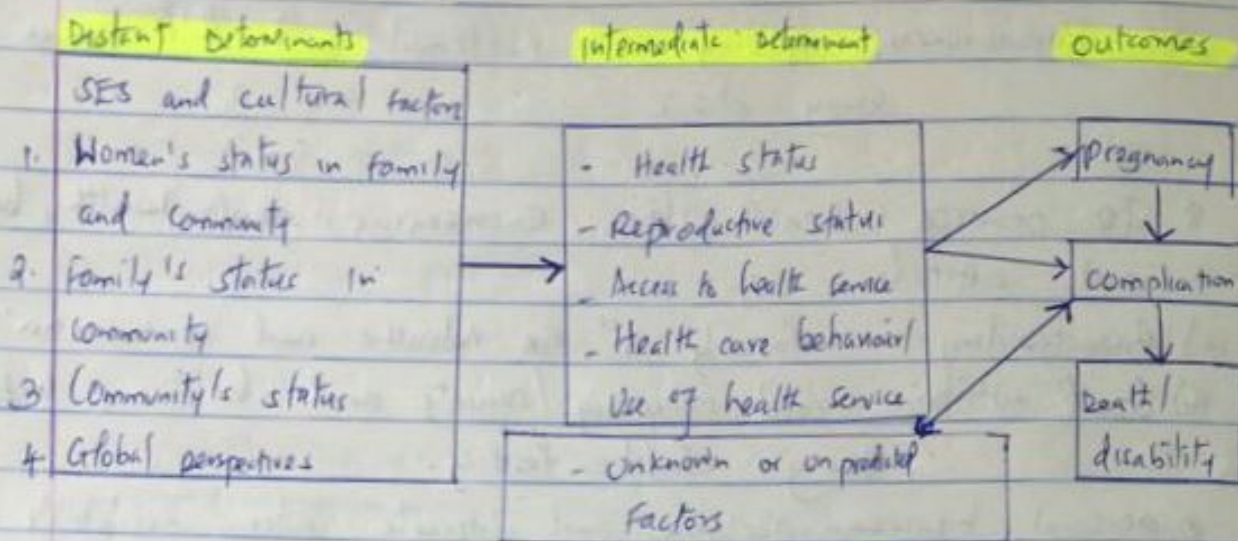 Distant Determinants
SES and cultural factors
1. Women's status in family
and community
2. Family's status in
community
3 Community's status
4. Global perspectives
Intermediate determinant
- Health status
- Reproductive status
- Access to health service
- Health care behaviour/
Use of health service
- Unknown or unpredicted
Factors
Outcomes
pregnancy
complication
Death/
disability